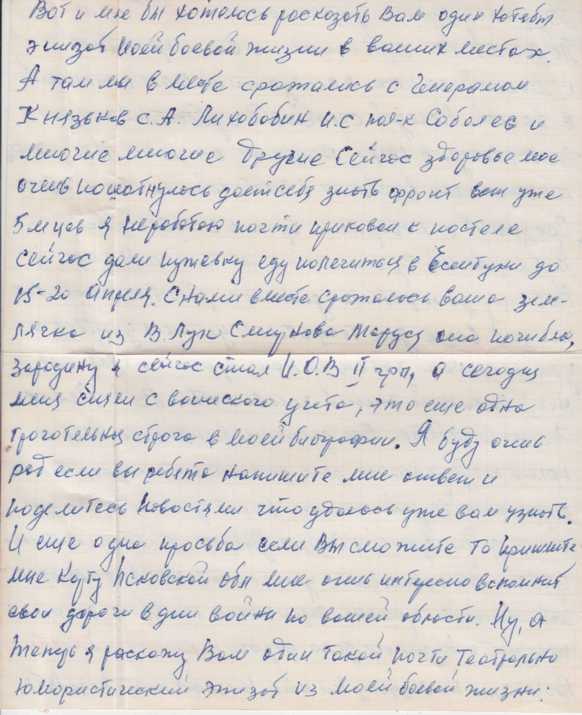 Вот и мне бы хотелось роскозоть Вам один хотебы
эпизот моей боевой жизни в ваших местах.
А там мы в месте срожались с Генералом
Князьков С.А. Лихобобин И.С пол-к Соболев и
многие многие другие Сейчос здоровье мое
очень пошотнулось доет себя зноть фронт вот уже
5 м-цов я не роботою почти прикован к постеле
Сейчос дали путевку еду полечиться в Есентуки до
15-20 Апреля. С нами вместе срожалось ваша зем-
лячка из В. Лук Смирнова Маруся она погибла,
за родину я сейчос стал И.О.В II груп, а сегодня
меня сняли с воинского учета, это еще одна
трогательная строго в моей биографии. Я буду очень
рот если вы ребята напишите мне ответ и
поделитесь новостями что удолось уже вам узноть.
И еще одно просьбо если Вы сможите то пришлите
мне Корту Псковской обл мне очень интересно вспомнит
свои дороги в дни войны по вашей облости. Ну, а
теперь я роскожу Вам один такой почти Театрально
юмористический эпизот из моей боевой жизни: